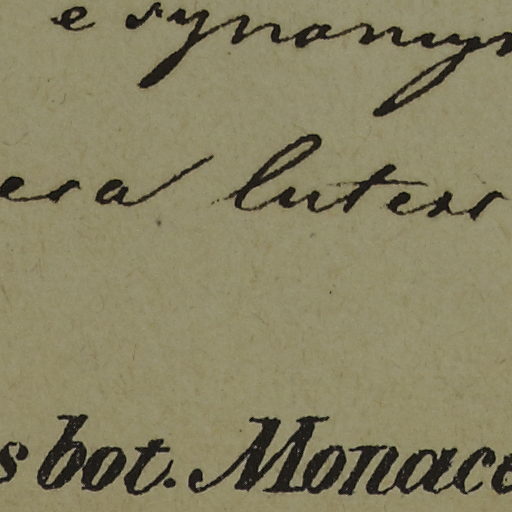 e synonym
era lutess
s bot. Monace